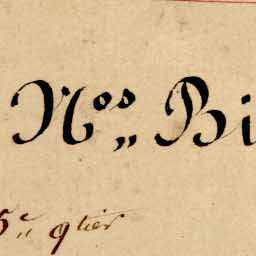 N^os „ Bi
5^e „ q^tier